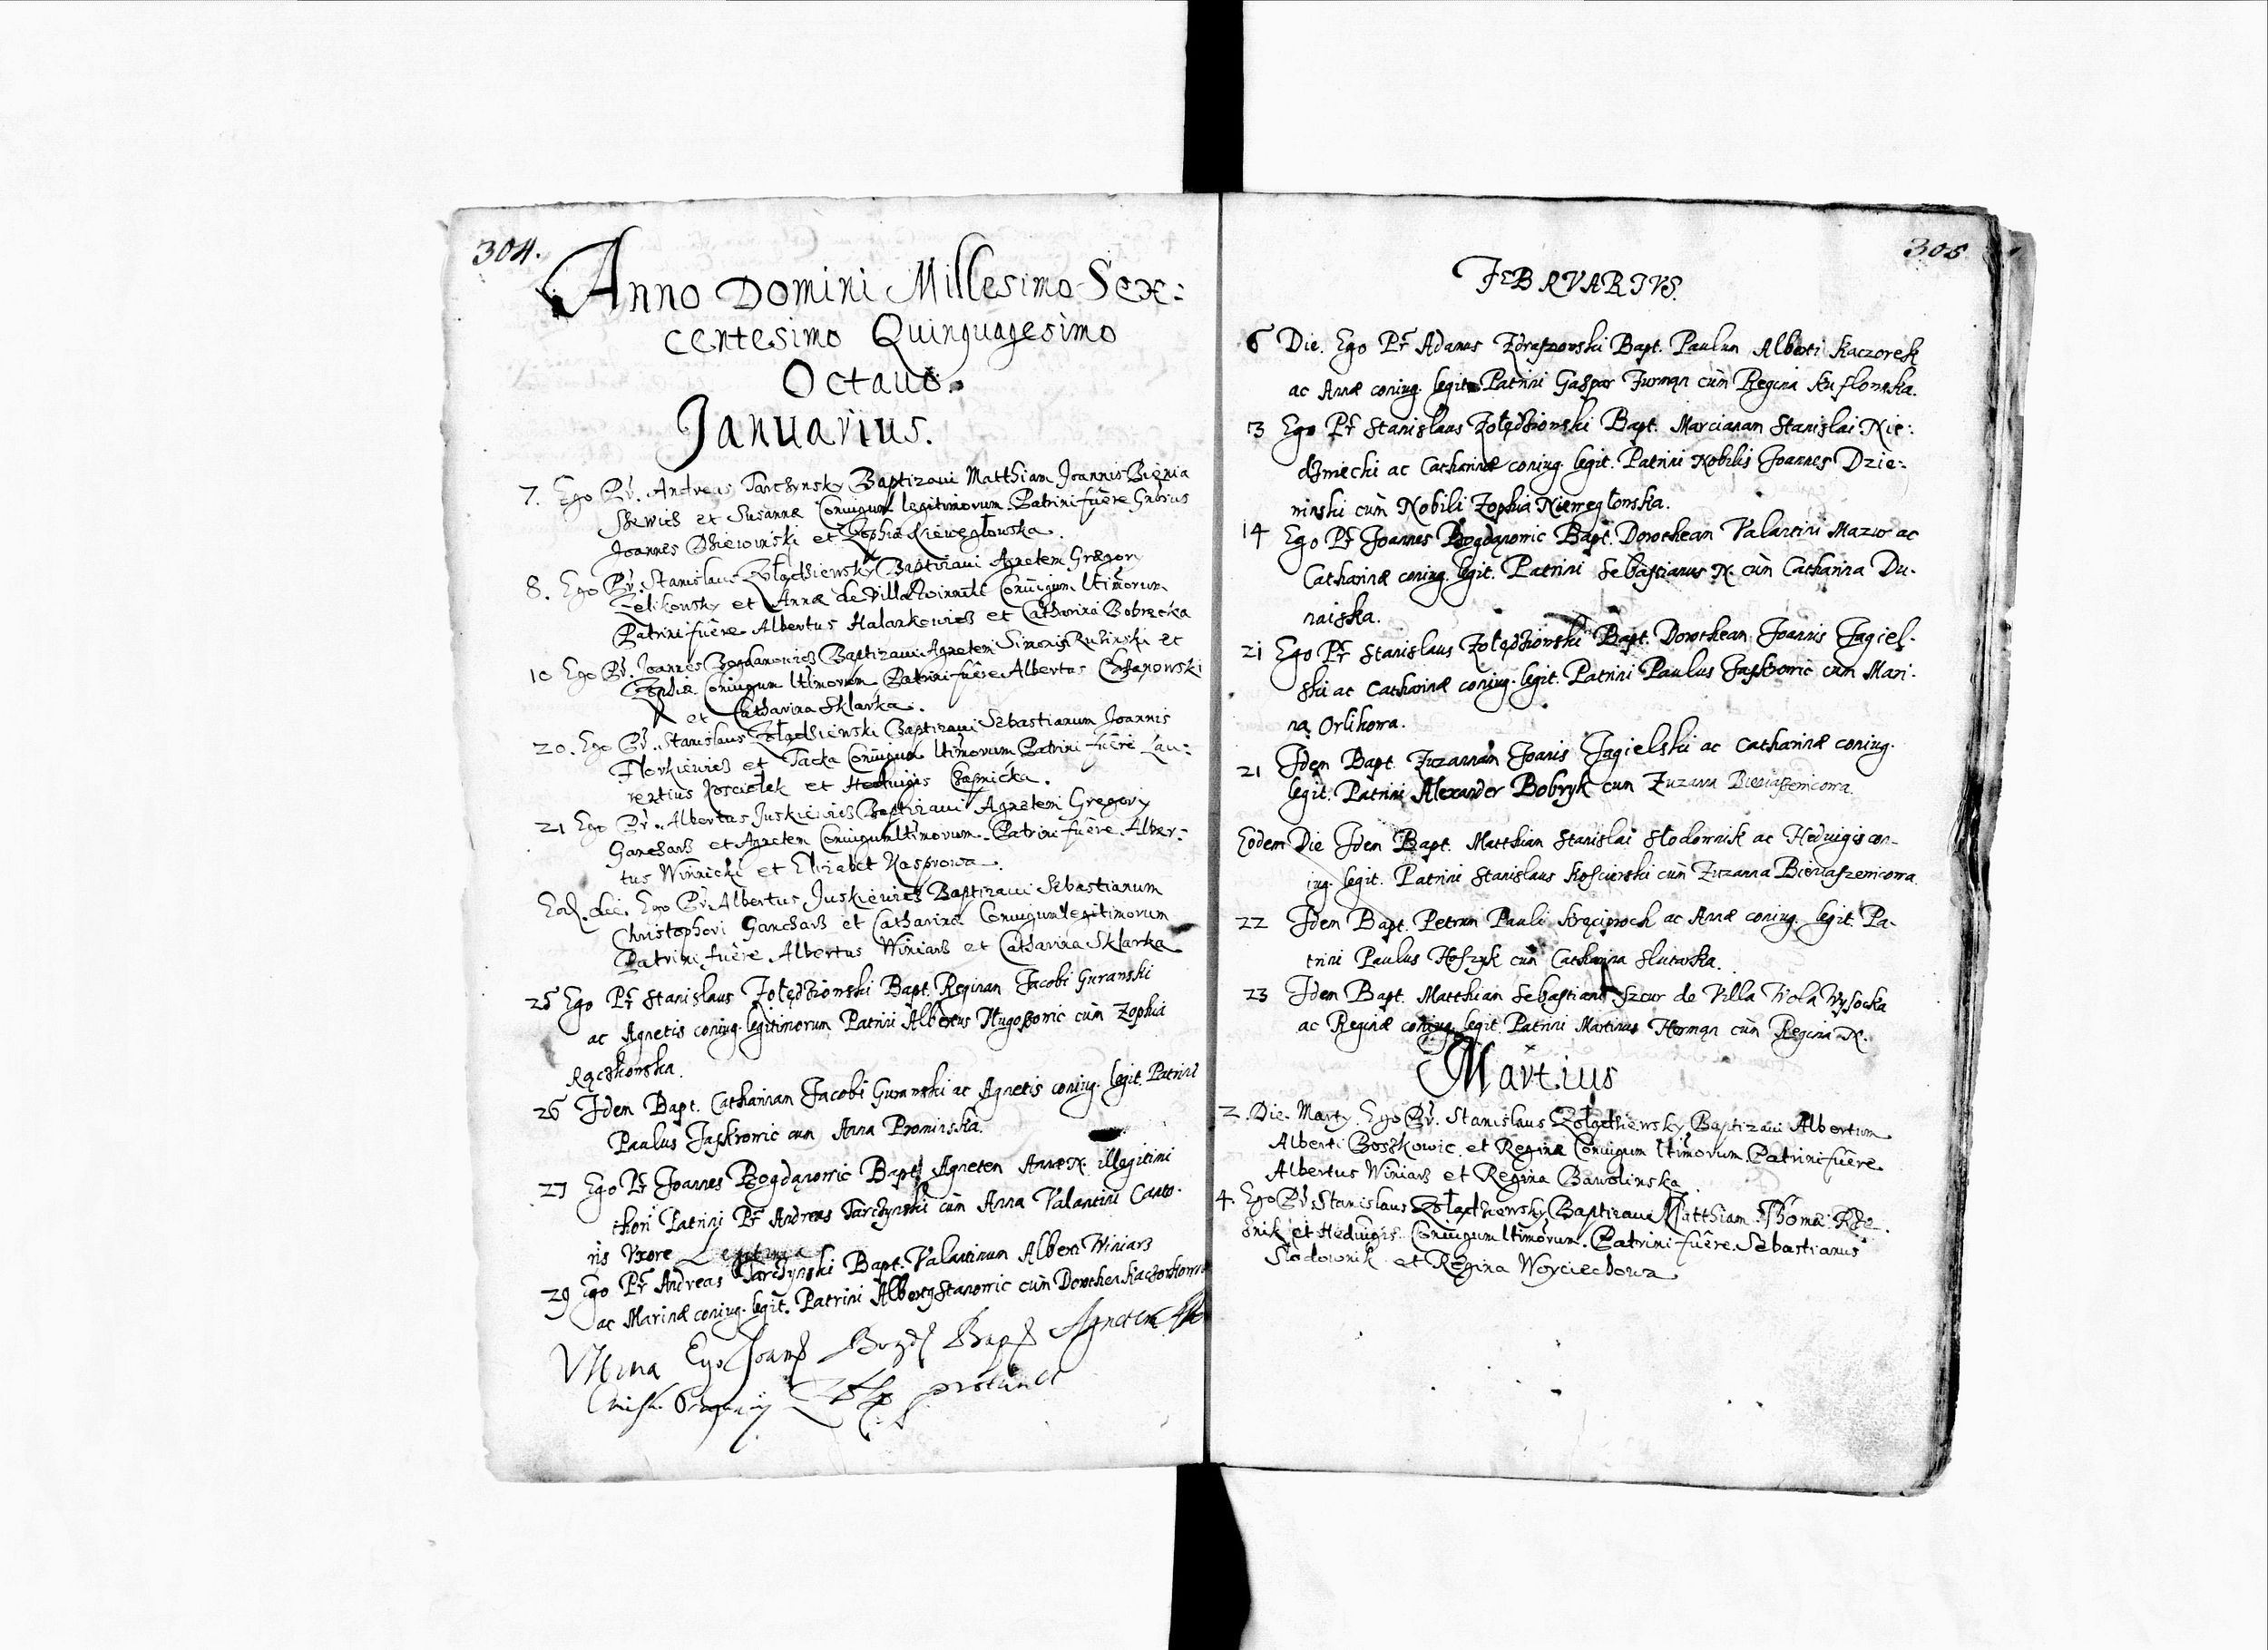 304.
Anno Domini Millesimo Sex:
centesimo Quinquagesimo
Octauo.
Januarius.
7. Ego Pr. Andreas Tarczynsky Baptizaui Matthiam Joannis Bienia
et Susannæ Coniugum legitimorum. Patrini fuêre
Joannes et Zophia
8. Ego Pr. Stanislaus Baptizaui Agnetem Gregory
Zelikowsky et Annæ de Villa Coniugum ltimorum
Patrini fuêre Albertus Halarkowicz et Catharina Bobrecka
10 Ego Pr. Joannes Bogdanowicz Baptizaui Agnetem Simonis Ruzinski et
Coniugum ltimorum Patrini fuêre Albertus
et Catharina Sklarka.
20. Ego Pr. Stanislaus Baptizaui Sebastianum Joannis
Florkiewicz et Coniugum ltimorum Patrini fuêre Lau:
rentius Kosciolek et Heduigis
21 Ego Pr. Albertus Juskiewicz Baptizaui Agnetem Gregory
Garcharz et Agnetem Coniugum ltimorum. Patrini fuêre Alber:
tus Winnicki et Elizabet Kasprowa.
Ego Pr. Albertus Juskiewicz Baptizaui Sebastianum
Christophori Garcharz et Catharinæ Coniugum legitimorum
Patrini fuêre. Albertus Winiarz et Catharina Sklarka
25 Ego Pr Stanislaus Bapt. Reginam Jacobi Guranski
ac Agnetis coniug. legitimorum Patrini Albertus cùm Zophia
26 Idem Bapt. Catharinam Jacobi Guranski ac Agnetis coniug. legit. Patrini
Paulus Jaskrowic cum Anna Prominska.
27 Ego Pr Joannes Bogdąnowic Bapt. Agnetem Annæ N. illegitimi
thori Patrini Pr Andreas Tarczynski cùm Anna Valantini Canto-
ris Vxore Legitima
29 Ego Pr Andreas Tarczynski Bapt. Valantinum Alberti Winiarz
ac Marinæ coniug. legit. Patrini Stanowic cùm Dorothea
Vltima Ego Bapt Agnetem
305
FEBRVARIVS.
6 Die. Ego Pr Adamus Bapt. Paulum Alberti Kaczorek
ac Annæ coniug. legit. Patrini Gaspar Furmąn cùm Regina
13 Ego Pr Stanislaus Bapt. Marcianam Stanislai Nie:
dzwiecki ac Catharinæ coniug. legit. Patrini Nobilis Joannes Dzie:
ninski cùm Nobili Zophia
14 Ego Pr Joannes Bogdąnowic Bapt. Dorotheam Valantini Mazur ac
Catharinæ coniug. legit. Patrini Sebastianus N. cùm Catharina Du-
naiska.
21 Ego Pr Stanislaus Bapt. Dorotheam Joannis Jagiel-
ski ac Catharinæ coniug. legit. Patrini Paulus Jaskrowic cùm Mari-
ną Orlikowa.
21 Idem Bapt. Zuzannam Joanis Jagielski ac Catharinæ coniug.
legit. Patrini Alexander Bobryk cum Zuzanna Bieniaszewicowa.
Eodem Die Idem Bapt. Matthiam Stanislai Slodownik ac Heduigis con-
iug. legit. Patrini Stanislaus Koscierski cùm Zuzanna Bieniaszewicowa.
22 Idem Bapt. Petrum Pauli ac Annæ coniug. legit. Pa-
trini Paulus cùm Catharina Slutarka.
23 Idem Bapt. Matthiam Sebastiani de Villa Wola Wysocka
ac Reginæ coniug. legit. Patrini Martinus Hermąn cùm Regina N.
Martius
2. Die. Marty. Ego Pr. Stanislaus Baptizaui Albertum
Alberti Boszkowic et Reginæ Coniugum ltimorum. Patrini fuêre.
Albertus Winiarz et Regina Bawolinska.
4. Ego Pr Stanislaus Baptizaui Matthiam Thomæ Rze
znik et Heduigis. Coniugum ltimorum. Patrini fuêre. Sebastianus
Slodownik. et Regina Woyciechowa